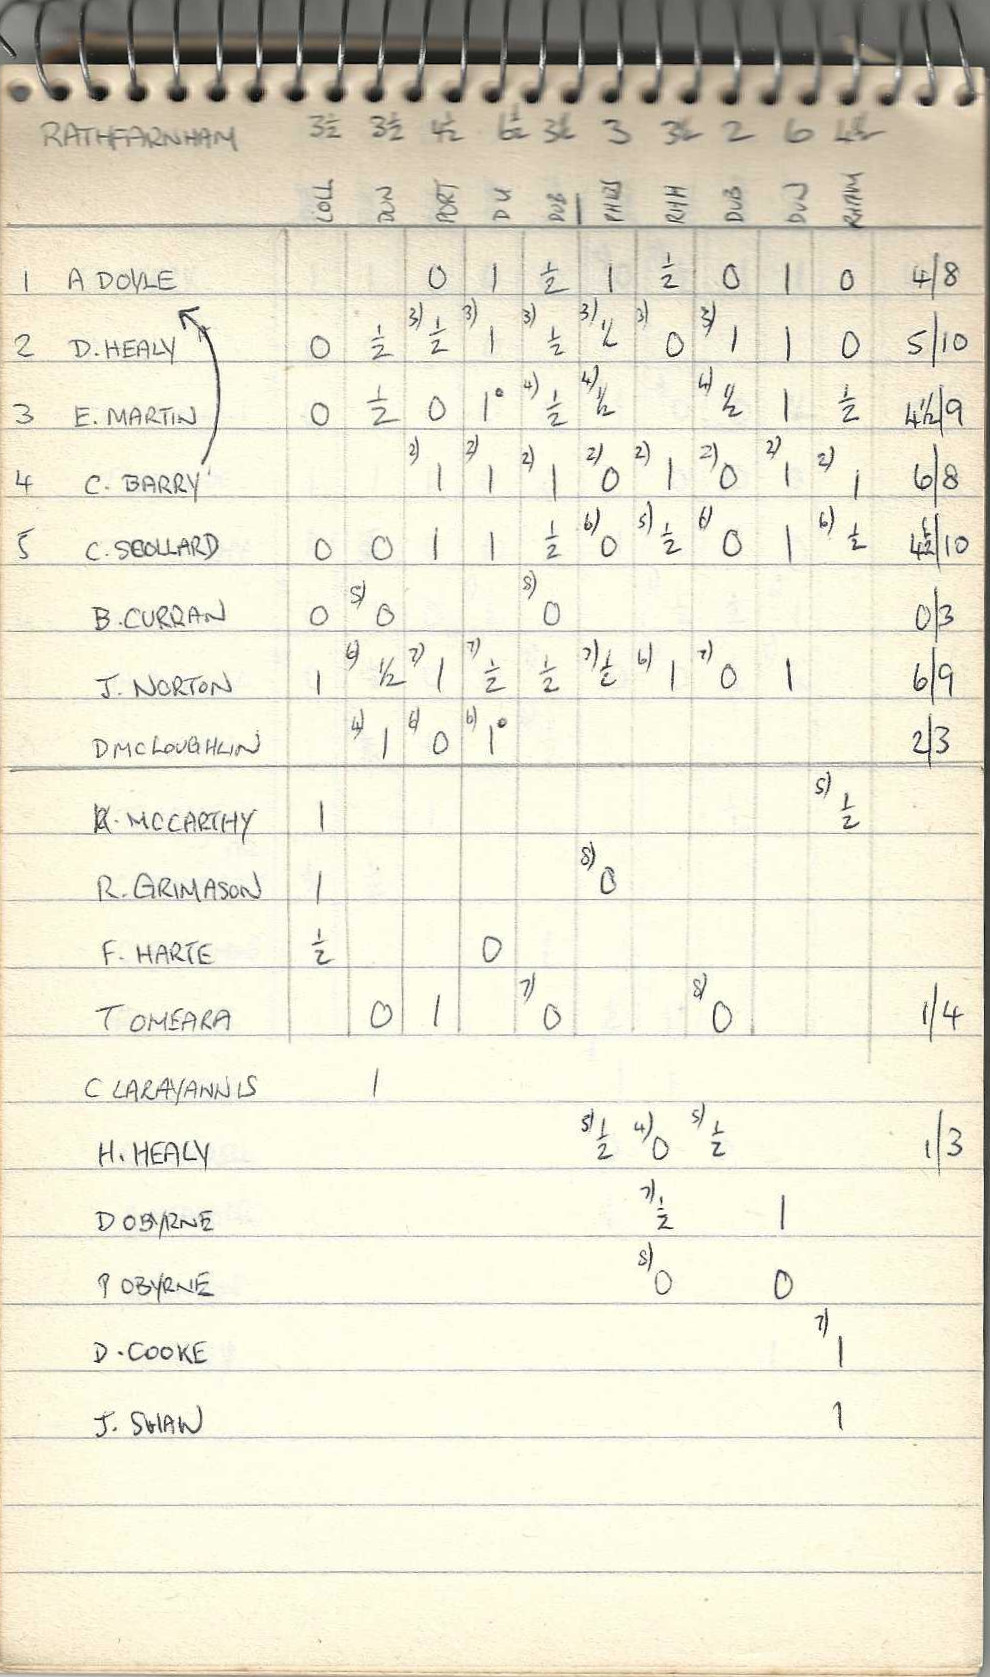 RATHFARNHAM 3½ 3½ 4½ 6½ 3½ 3 3½ 2 6 4½
COLL DUN PORT DU DUB PHIBS RHH DUB DUN RHAM
1 A DOYLE 0 1 ½ 1 ½ 0 1 0 4/8
2 D. HEALY 0 ½ 3) ½ 3) 1 3) ½ 3) ½ 3) 0 3) 1 1 0 5/10
3 E. MARTIN 0 ½ 0 1° 4) ½ 4) ½ 4) ½ 1 ½ 4½/9
4 C. BARRY 2) 1 2) 1 2) 1 2) 0 2) 1 2) 0 2) 1 2) 1 6/8
5 C. SCOLLARD 0 0 1 1 ½ 6) 0 5) ½ 6) 0 1 6) ½ 4½/10
B. CURRAN 0 5) 0 8) 0 0/3
J. NORTON 1 6) ½ 7) 1 7) ½ ½ 7) ½ 6) 1 7) 0 1 6/9
D MCLOUGHLIN 4) 1 6) 0 6) 1° 2/3
K. MCCARTHY 1 5) ½
R. GRIMASON 1 8) 0
F. HARTE ½ 0
T OMEARA 0 1 7) 0 8) 0 1/4
C LARAYANNIS 1
H. HEALY 5) ½ 4) 0 5) ½ 1/3
D OBYRNE 7) ½ 1
P OBYRNE 8) 0 0
D. COOKE 7) 1
J. SHAW 1